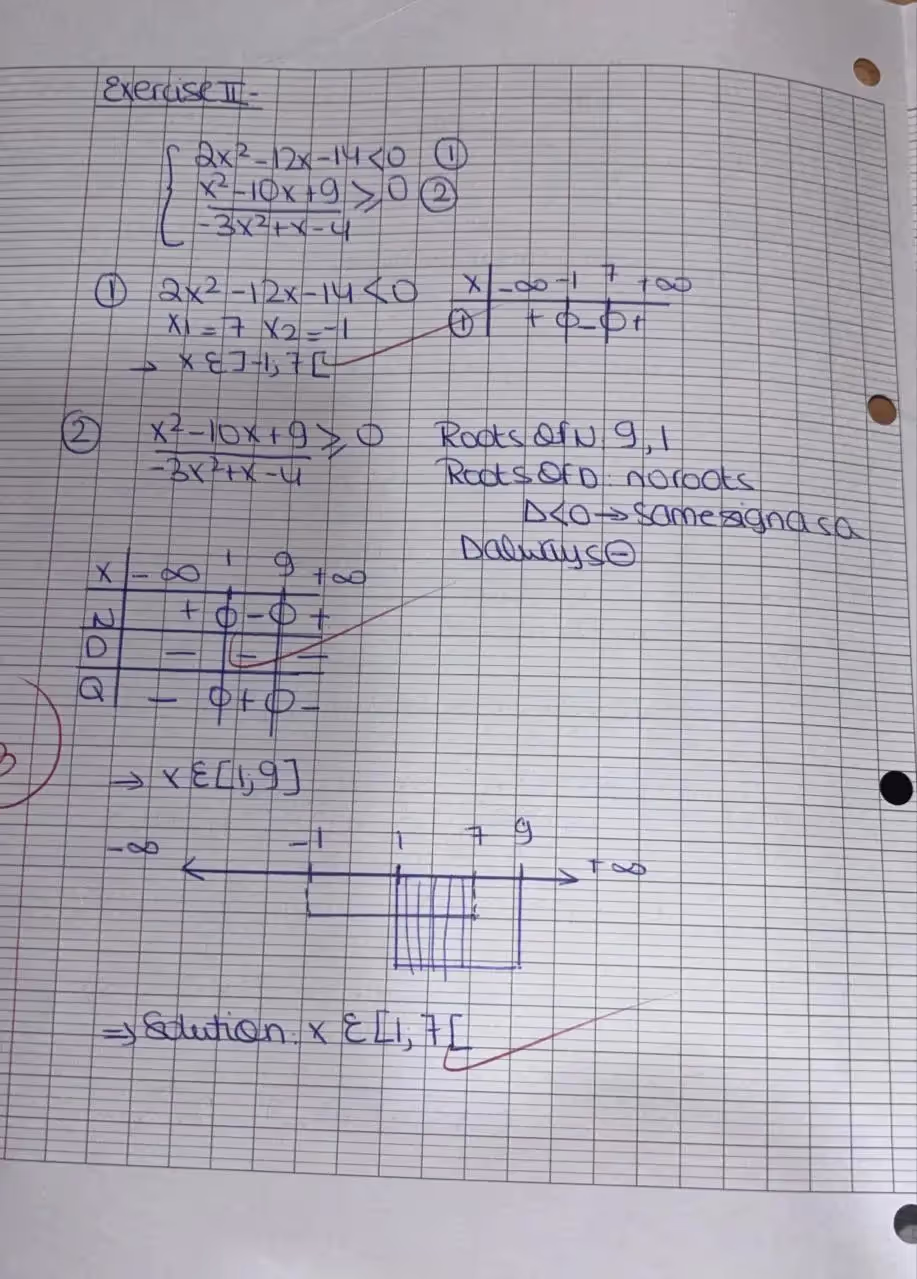 Exercise II-
2x²-12x-14<0 ①
x²-10x+9 ⩾0 ②
-3x²+x-4
① 2x²-12x-14<0
x1=7 x2=-1
→ x ε ]-1; 7 [
x -∞ -1 7 +∞
① + ϕ - ϕ +
② x²-10x+9 ⩾ 0
-3x²+x-4
Roots Of N 9,1
Roots Of D: no roots
Δ<0 → same sign as a
D always ⊖
x -∞ 1 9 +∞
N + ϕ - ϕ +
D - - -
Q - ϕ + ϕ -
→ x ε [1,9]
-∞ -1 1 7 9 +∞
⇒ Solution: x ε [1; 7 [